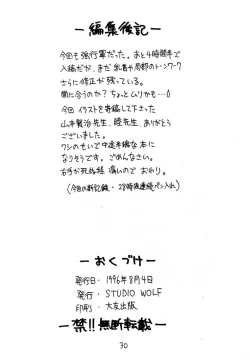 ー編集後記ー
今回も強行軍だった。あと4時間半で
入稿だが、まだ乳首や局部のトーンワーク
さらに修正が残っている。
間に合うのか？ちょっとムリかも…
今回イラストを寄稿して下さった
山本賢治先生、睦先生、ありがとう
ございました。
ワシのせいで中途半端な本に
なりそうです。ごめんなさい。
右手が死ぬ程痛いのでおわり。
(今回の新記録・28時間連続ペン入れ)
ーおくづけー
発行日・1996年8月4日
発行・STUDIO WOLF
印刷・大友出版
ー禁!!無断転載ー
30